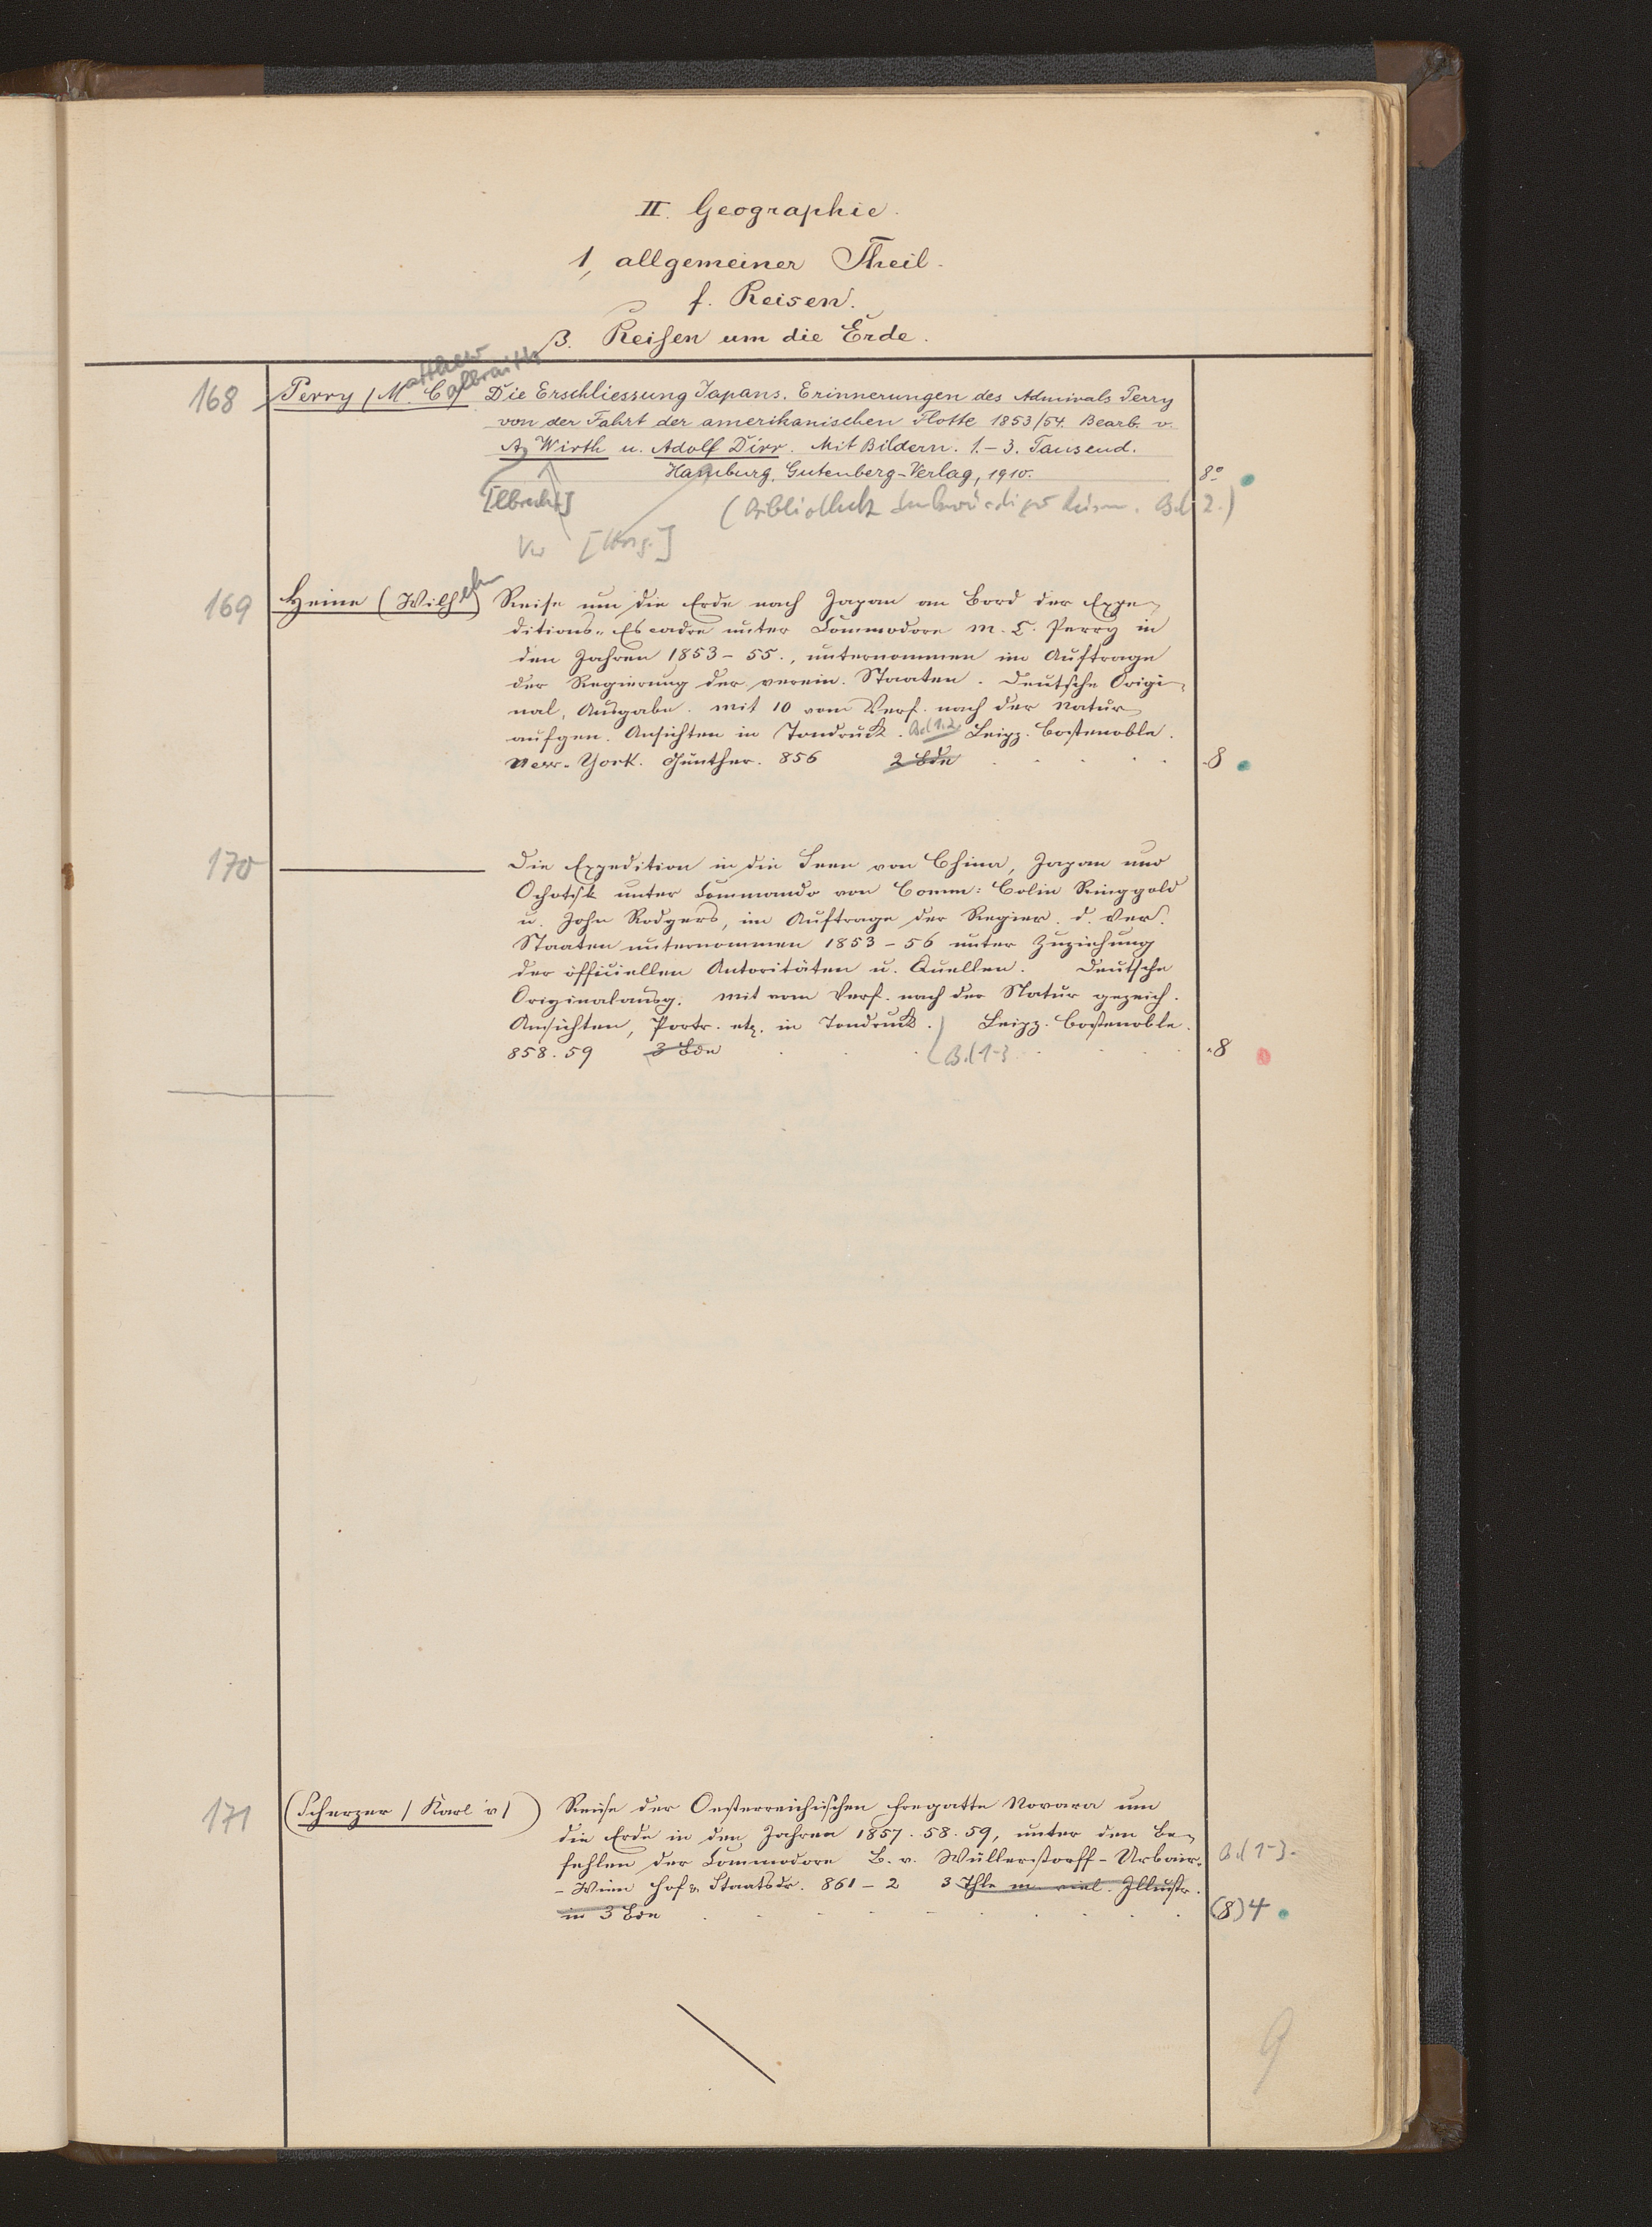 II. Geographie.
1, allgemeiner Theil.
f. Reisen.
β. Reisen um die Erde.
168 Perry (M.atthew C.albraith) Die Erschliessung Japans. Erinnerungen des Admirals Perry
von der Fahrt der amerikanischen Flotte 1853/54. Bearb. v.
A. Wirth u. Adolf Dirr. Mit Bildern. 1.-3. Tausend.
Hamburg, Gutenberg-Verlag, 1910. 8°
[lbrecht] (Bibliothek denkwürdiger Reisen. Bd 2.)
[Hrsg.]
169 Heine (Wilhelm) Reise um die Erde nach Japan an Bord der Expe-
ditions-Escadre unter Commodore M. C. Perry in
den Jahren 1853-55., unternommen im Auftrage
der Regierung der verein. Staaten. Deutsche Origi-
nal, Ausgabe. mit 10 vom Verf. nach der Natur
aufgen. Ansichten in Tondruck. Bd 1.2. Leipz. Costenoble.
New-York. Günther. 856 2 Bde 8
170 Die Expedition in die Seen von China, Japan und
Ochotsk unter Commando von Comm: Colin Ringgold
u. John Rodgers, im Auftrage der Regier. d. Ver.
Staaten unternommen 1853-56 unter Zuziehung
der officiellen Autoritäten u. Quellen. Deutsche
Originalausg. mit vom Verf. nach der Natur gezeich.
Ansichten, Portr. etz. in Tondruck. Leipz. Costenoble.
858.59 3 Bde Bd 1-3 8
171 (Scherzer (Karl v)) Reise der Oesterreichischen Fregatte Novara um
die Erde in den Jahren 1857.58.59, unter den Be-
fehlen der Commodore B. v. Wüllerstorff-Urbair. Bd 1-3.
- Wien Hof & Staatsdr. 861-2 3 Thle m. viel. Illustr.
in 3 Bde (8) 4
9